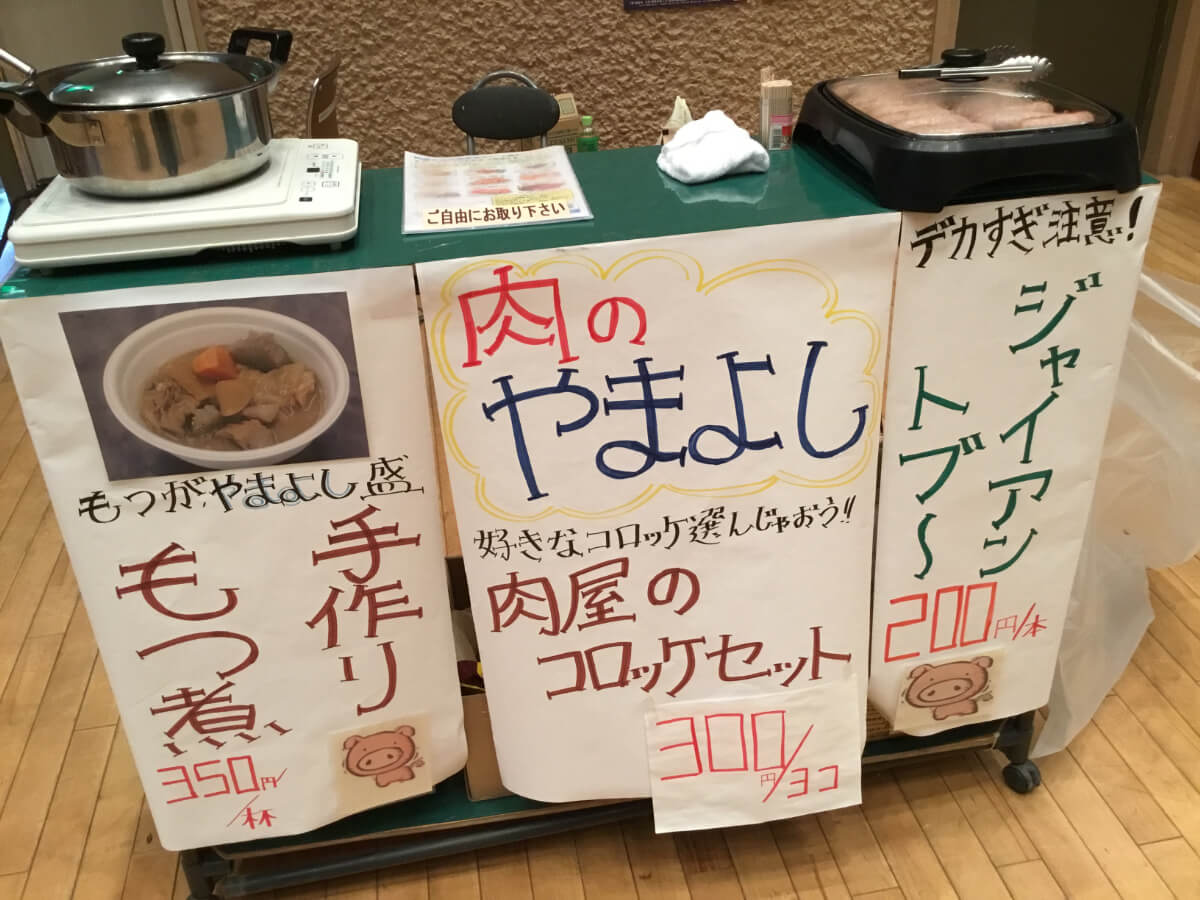 ご自由にお取り下さい
もつがやまよし盛
手作り
もつ煮
350円/
/杯
肉の
やまよし
好きなコロッケ選んじゃおう!!
肉屋の
コロッケセット
300/
円/3コ
デカすぎ注意!
ジャイアン
トブ〜
200円/本